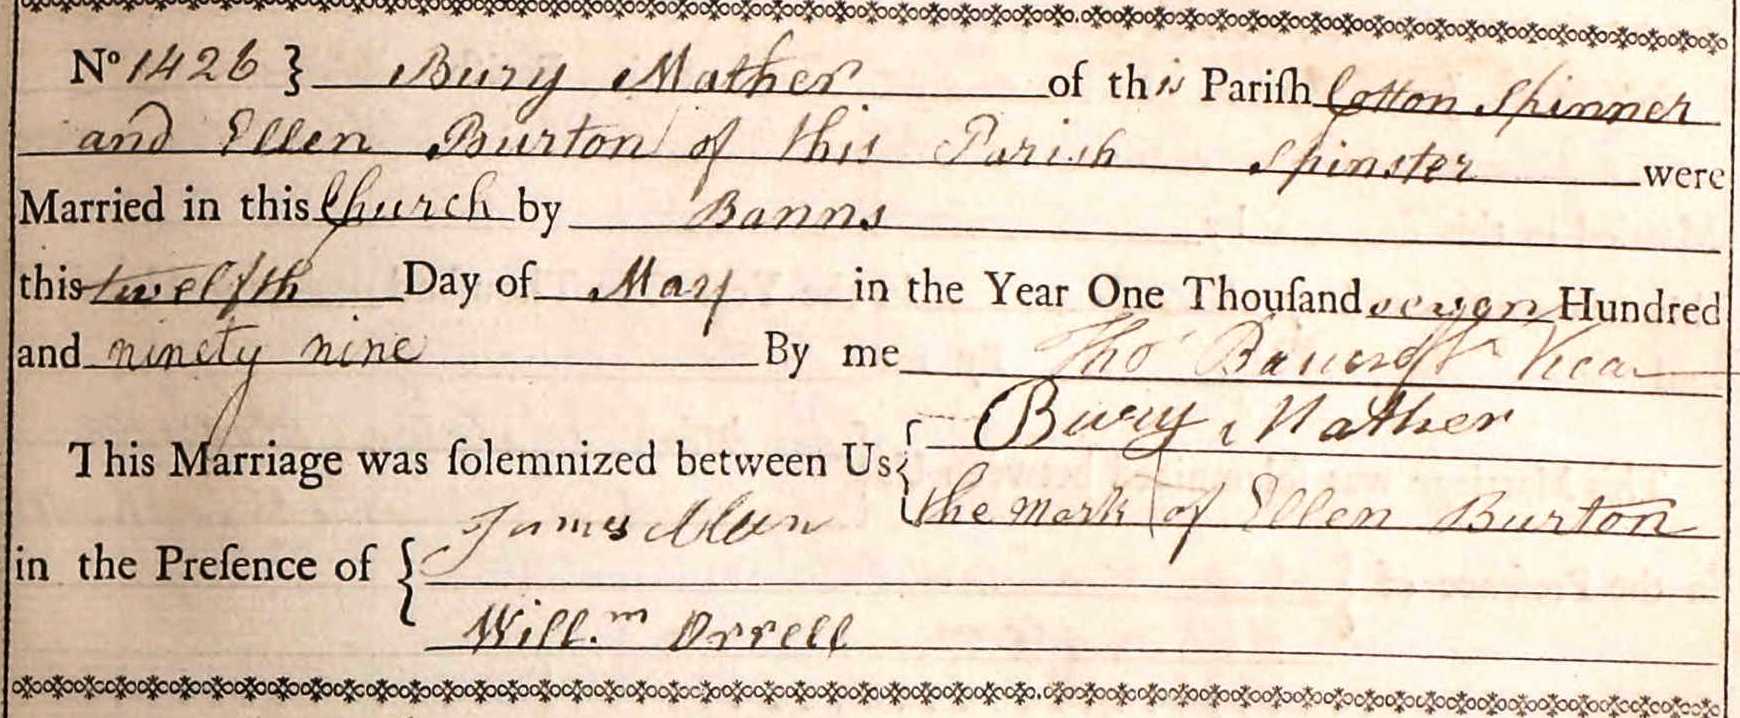 No 1426 } Bury Mather of this Pariſh Cotton Spinner
and Ellen Burton of this Parish Spinster were
Married in this Church by Banns
this twelfth Day of May in the Year One Thouſand seven Hundred
and ninety nine By me Thos Bancroft Vicar
This Marriage was ſolemnized between Us { Bury Mather
the mark | of Ellen Burton
in the Preſence of { James
Will.m Orrell